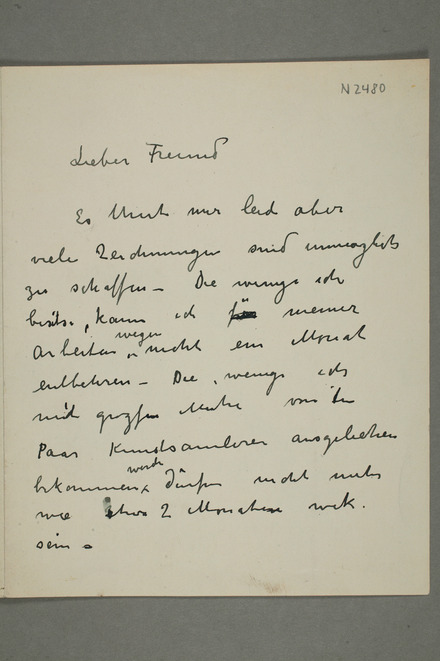 N2480
Lieber Freund
Es thut mir leid aber
viele Zeichnungen sind unmöglich
zu schaffen – Die wenige ich
besitze, kann ich meiner
Arbeiten wegen nicht ein Monat
entbehren – Die, wenige ich
mit grosser Mühe von
Paar Kunstsamlerer ausgeliehen
bekommen werde dürfen nicht mehr
wie etwa 2 Monaten wek.
sein –